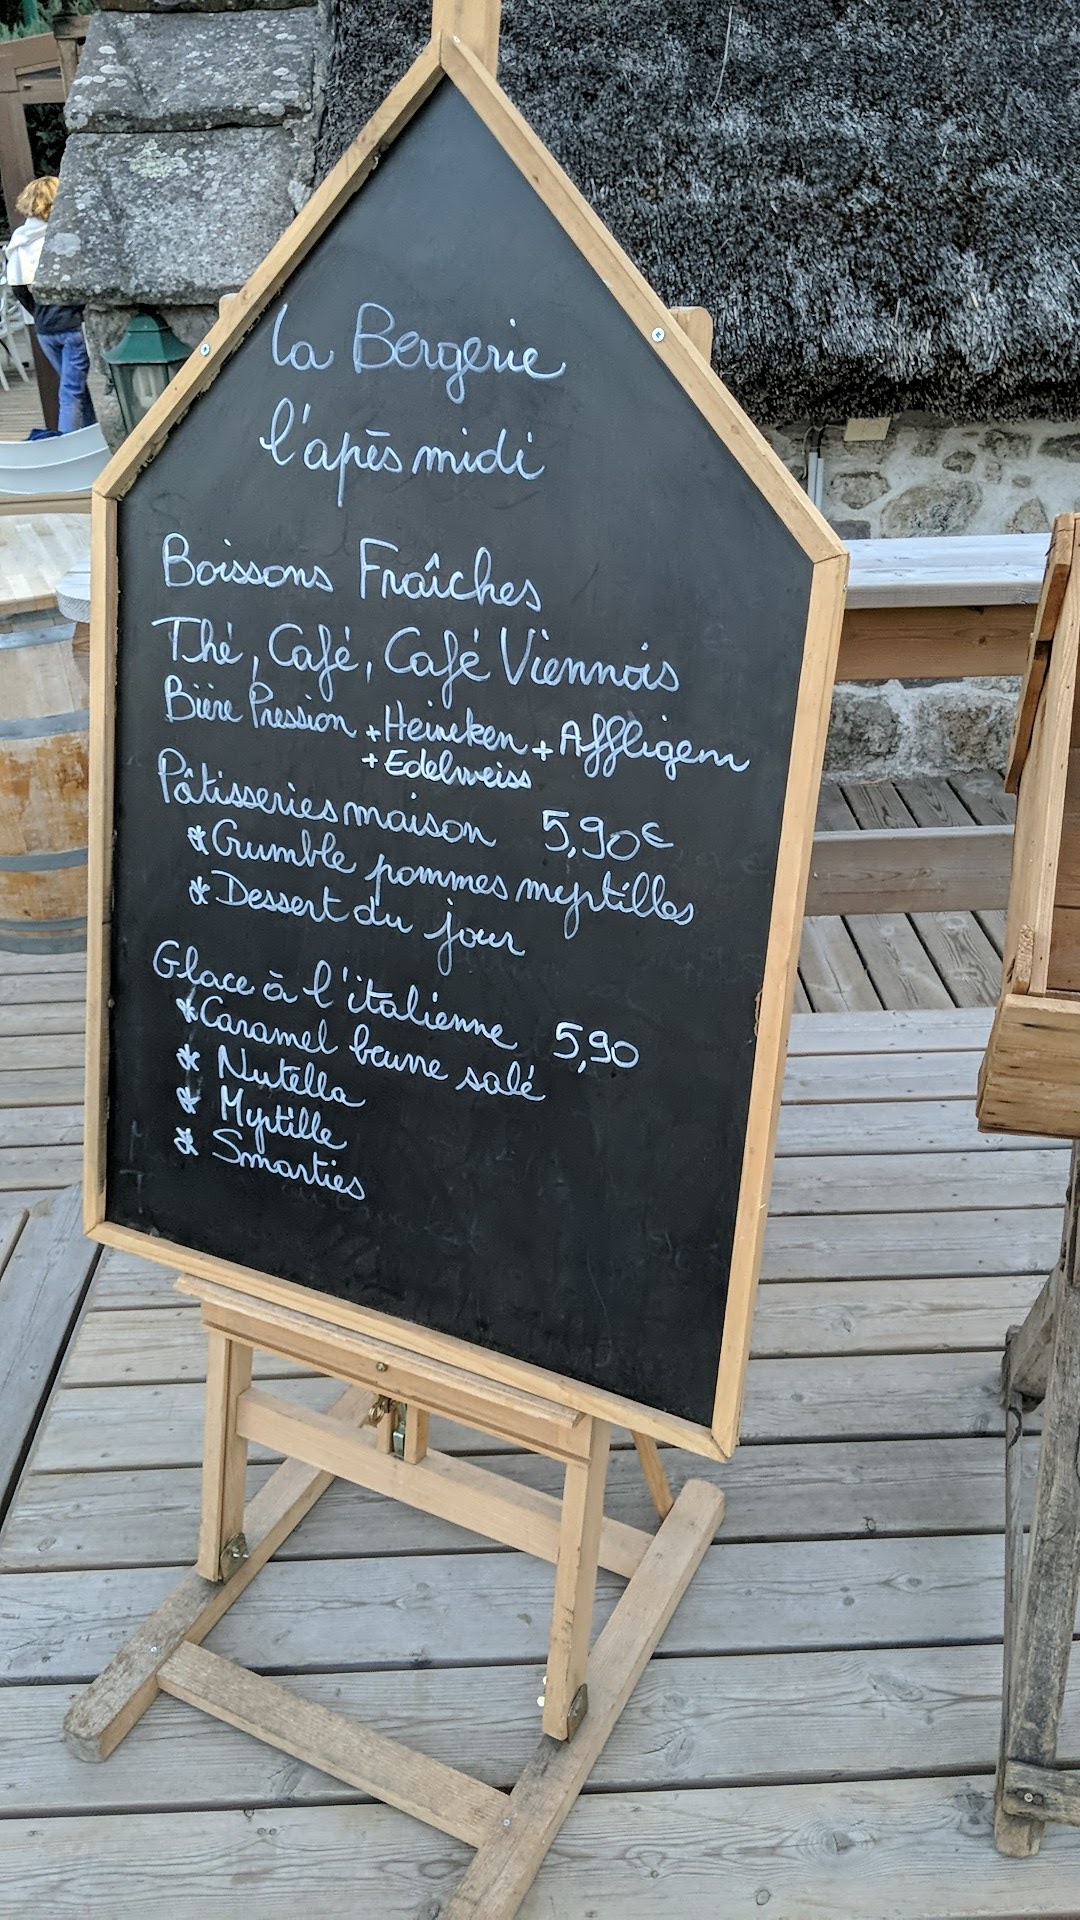 la Bergerie
l'apēs midi
Boissons Fraîches
Thé, Café, Café Viennois
Bière Pression + Heineken + Affligem
+ Edelweiss
Pâtisseries maison 5,90€
* Crumble pommes myrtilles
* Dessert du jour
Glace à l'italienne 5,90
* Caramel beurre salé
* Nutella
* Myrtille
* Smarties